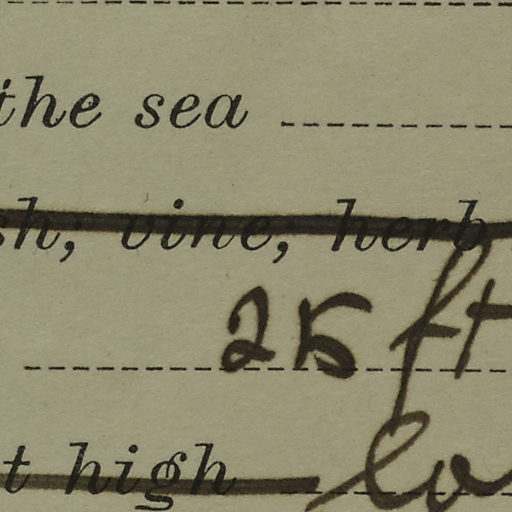 the sea
sh, vine, herb
25 ft
t high